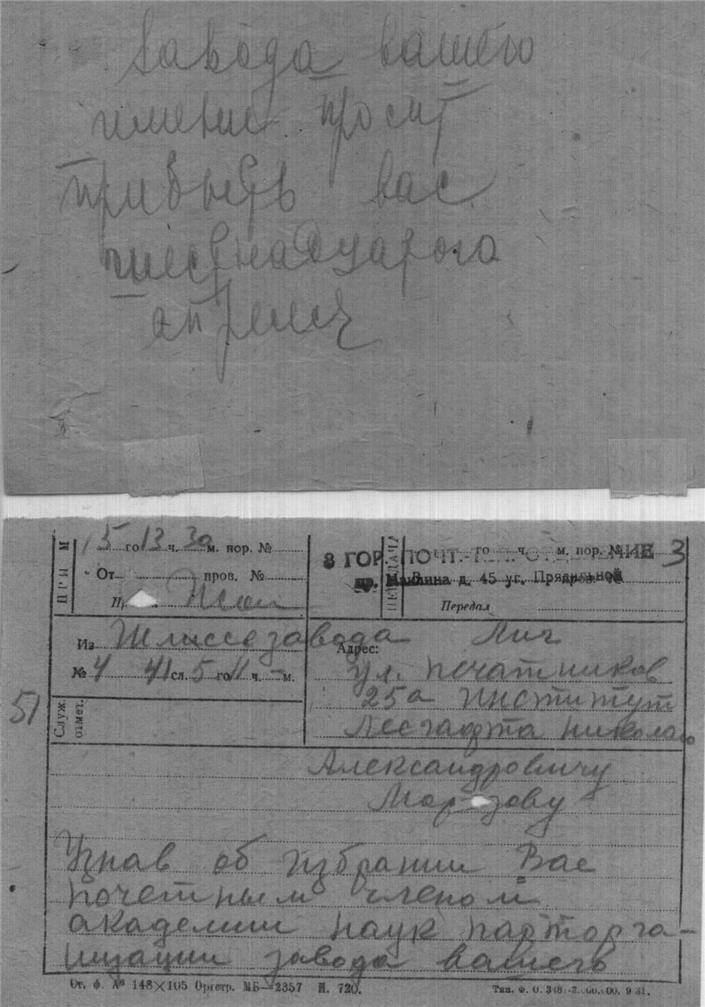 завода вашего
имени просит
прибыть вас
шестнадцатого
апреля
ПРИЕМ
15 го 13 ч. 30 м. пор. №
От пров. №
8 ГОР. ПОЧТ. ОТДЕЛЕНИЕ 3
ПЕРЕДАЧА
го ч. м. пор. №
пр. Маклина д. 45 уг. Прядильной
Передал
Из Шлиссезавода
№ 4 41 сл. 5 го 11 ч. – м.
Адрес: Лич
ул. печатников
25а институт
Лесгафта Николаю
51
Служ. отмет.
Александровичу
Морозову
Узнав об избрании Вас
почетным членом
академии наук парторга-
низации завода вашего
От. ф. А⁶ 148×105 Оргстр. МБ—2357 Н. 720.
Тип. Ф. О. 9 31.